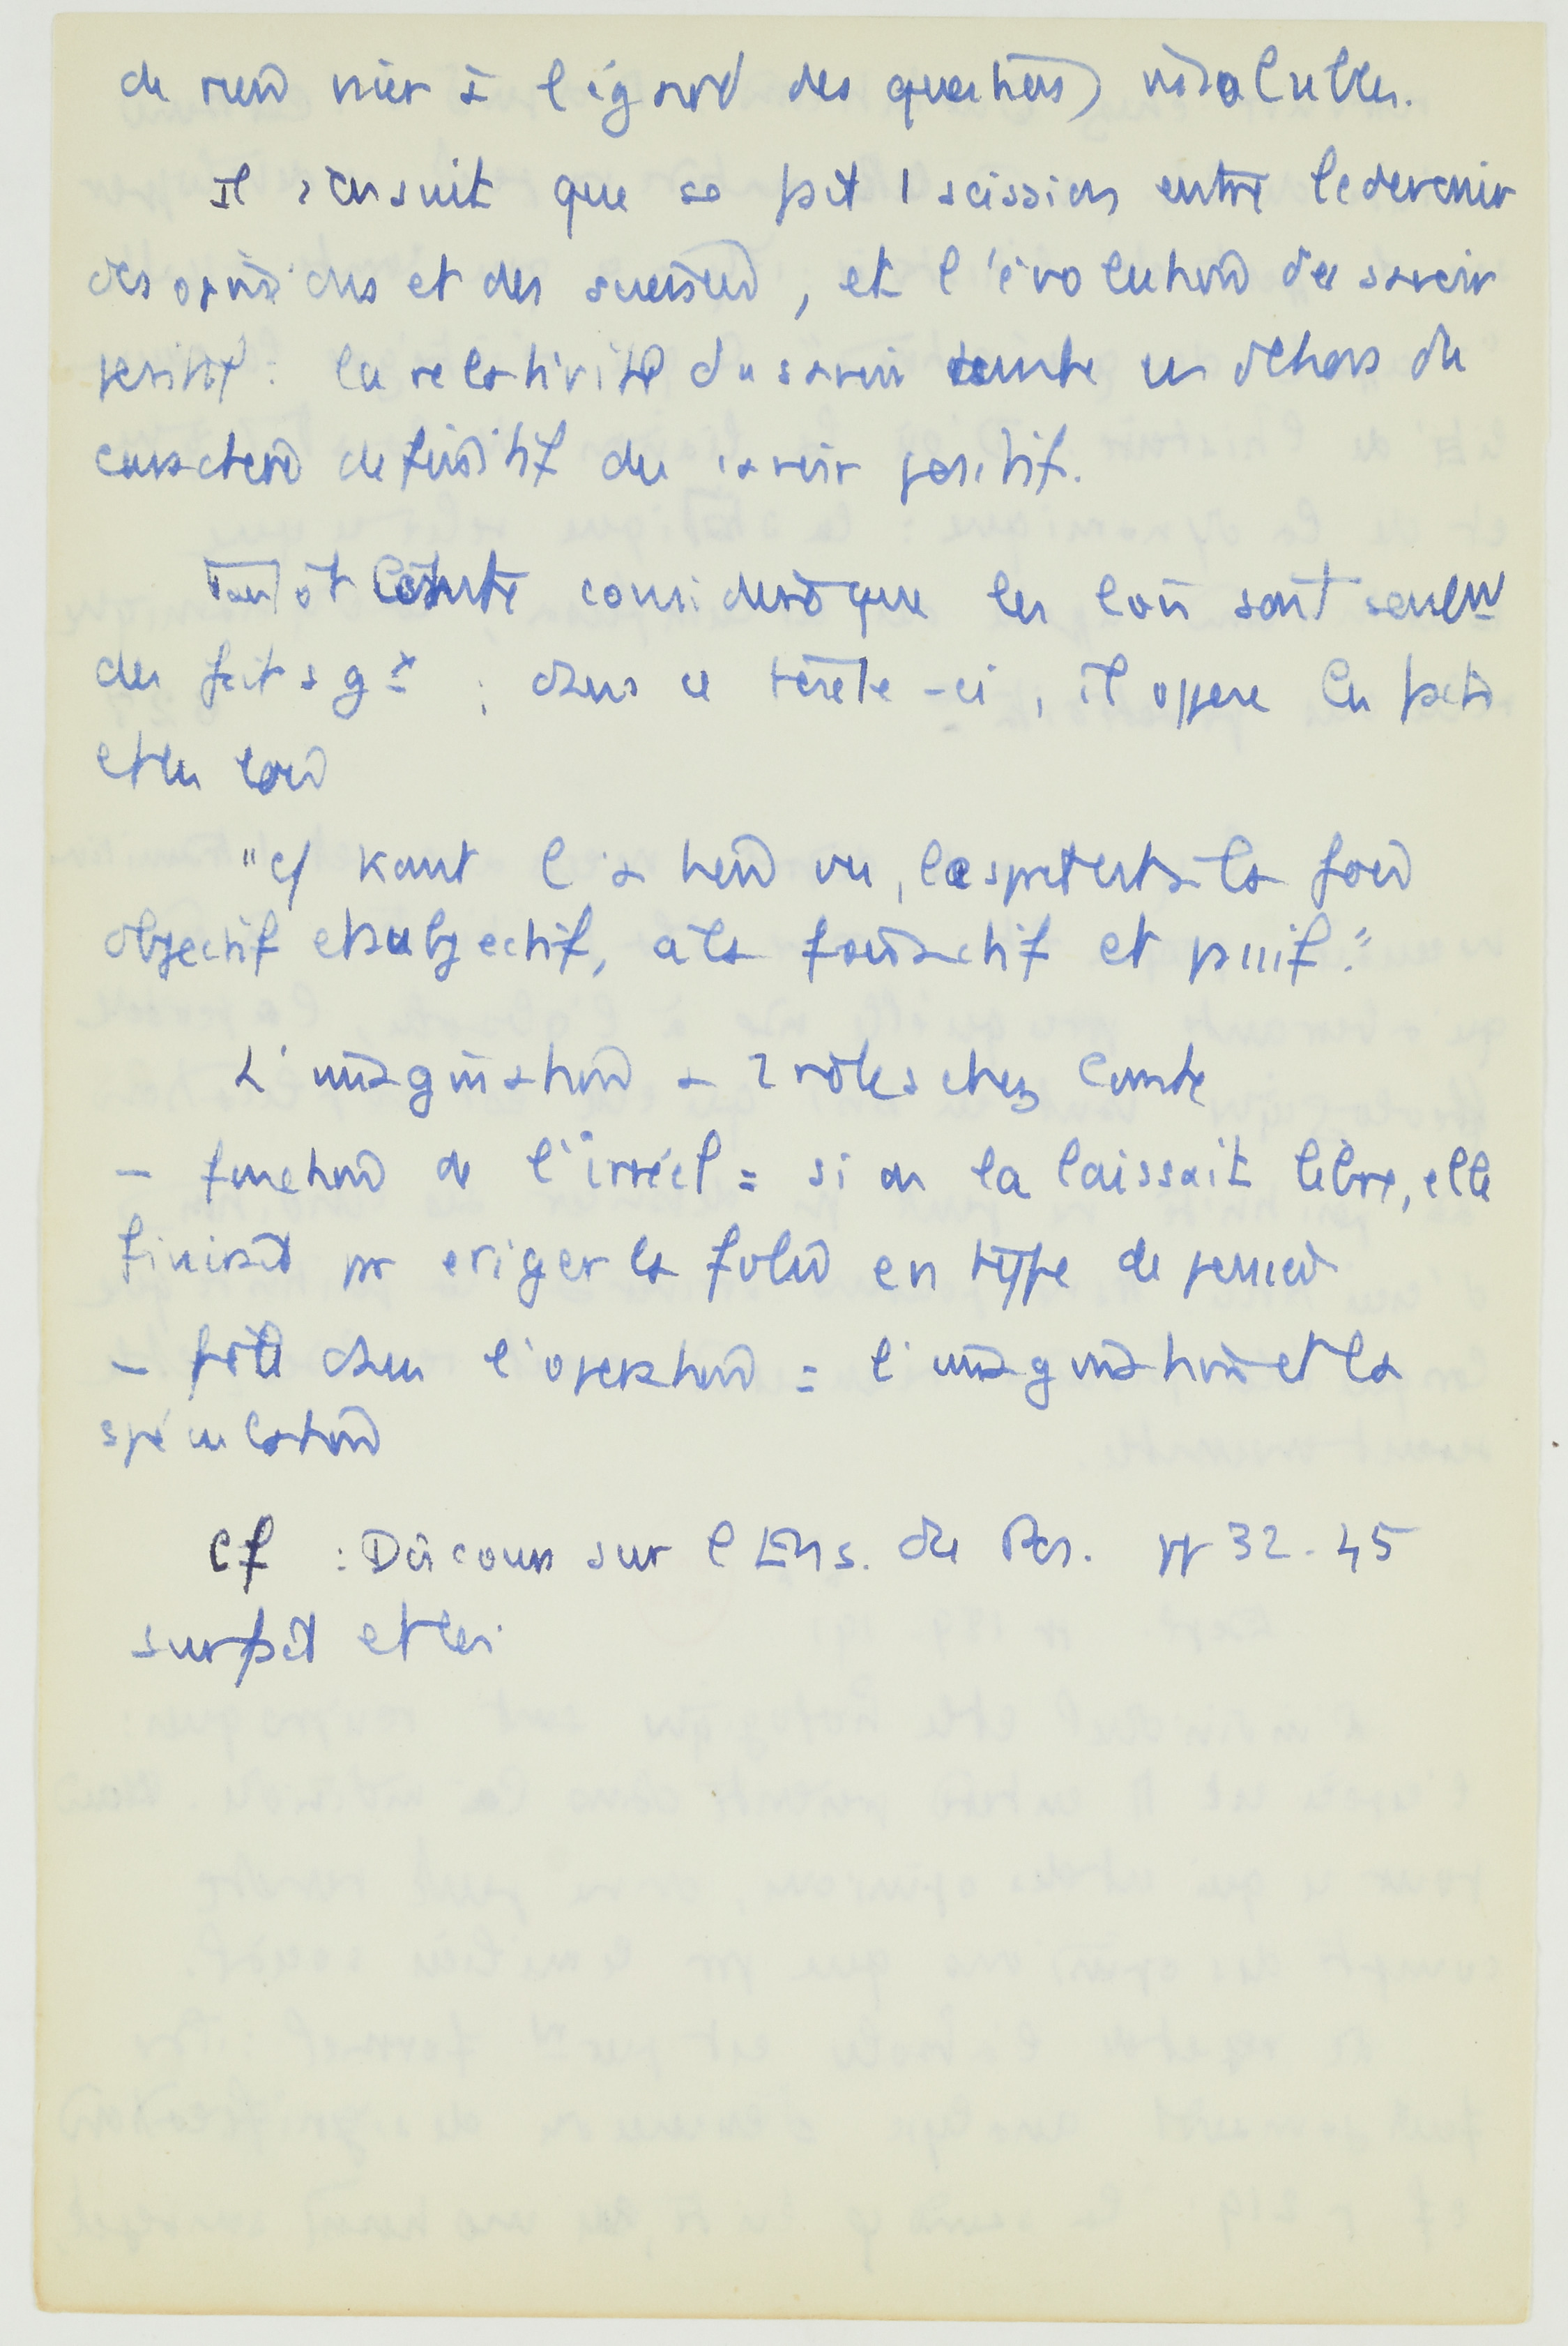 de rien nier à l'égard des questions insolubles.
Il s'ensuit que se fait 1 scission entre le devenir
des opinions et des sciences, et l'évolution du savoir
positif : la relativité du savoir tombe en dehors du
caractère définitif du savoir positif.
Tantôt Comte considère que les lois sont seulemt
des faits gx ; dans ce texte-ci, il oppose les faits
et les lois
"c/ Kant l'a bien vu, l'esprit est à la fois
objectif et subjectif, à la fois actif et passif."
L'imagination a 2 rôles chez Comte
- fonction de l'irréel = si on la laissait libre, elle
finirait pr eriger la folie en type de pensée
- rôle dans l'opération = l'imagination et la
spéculation
Cf : Discours sur l'Ens. du Pos. pp 32-45
sur fait et loi